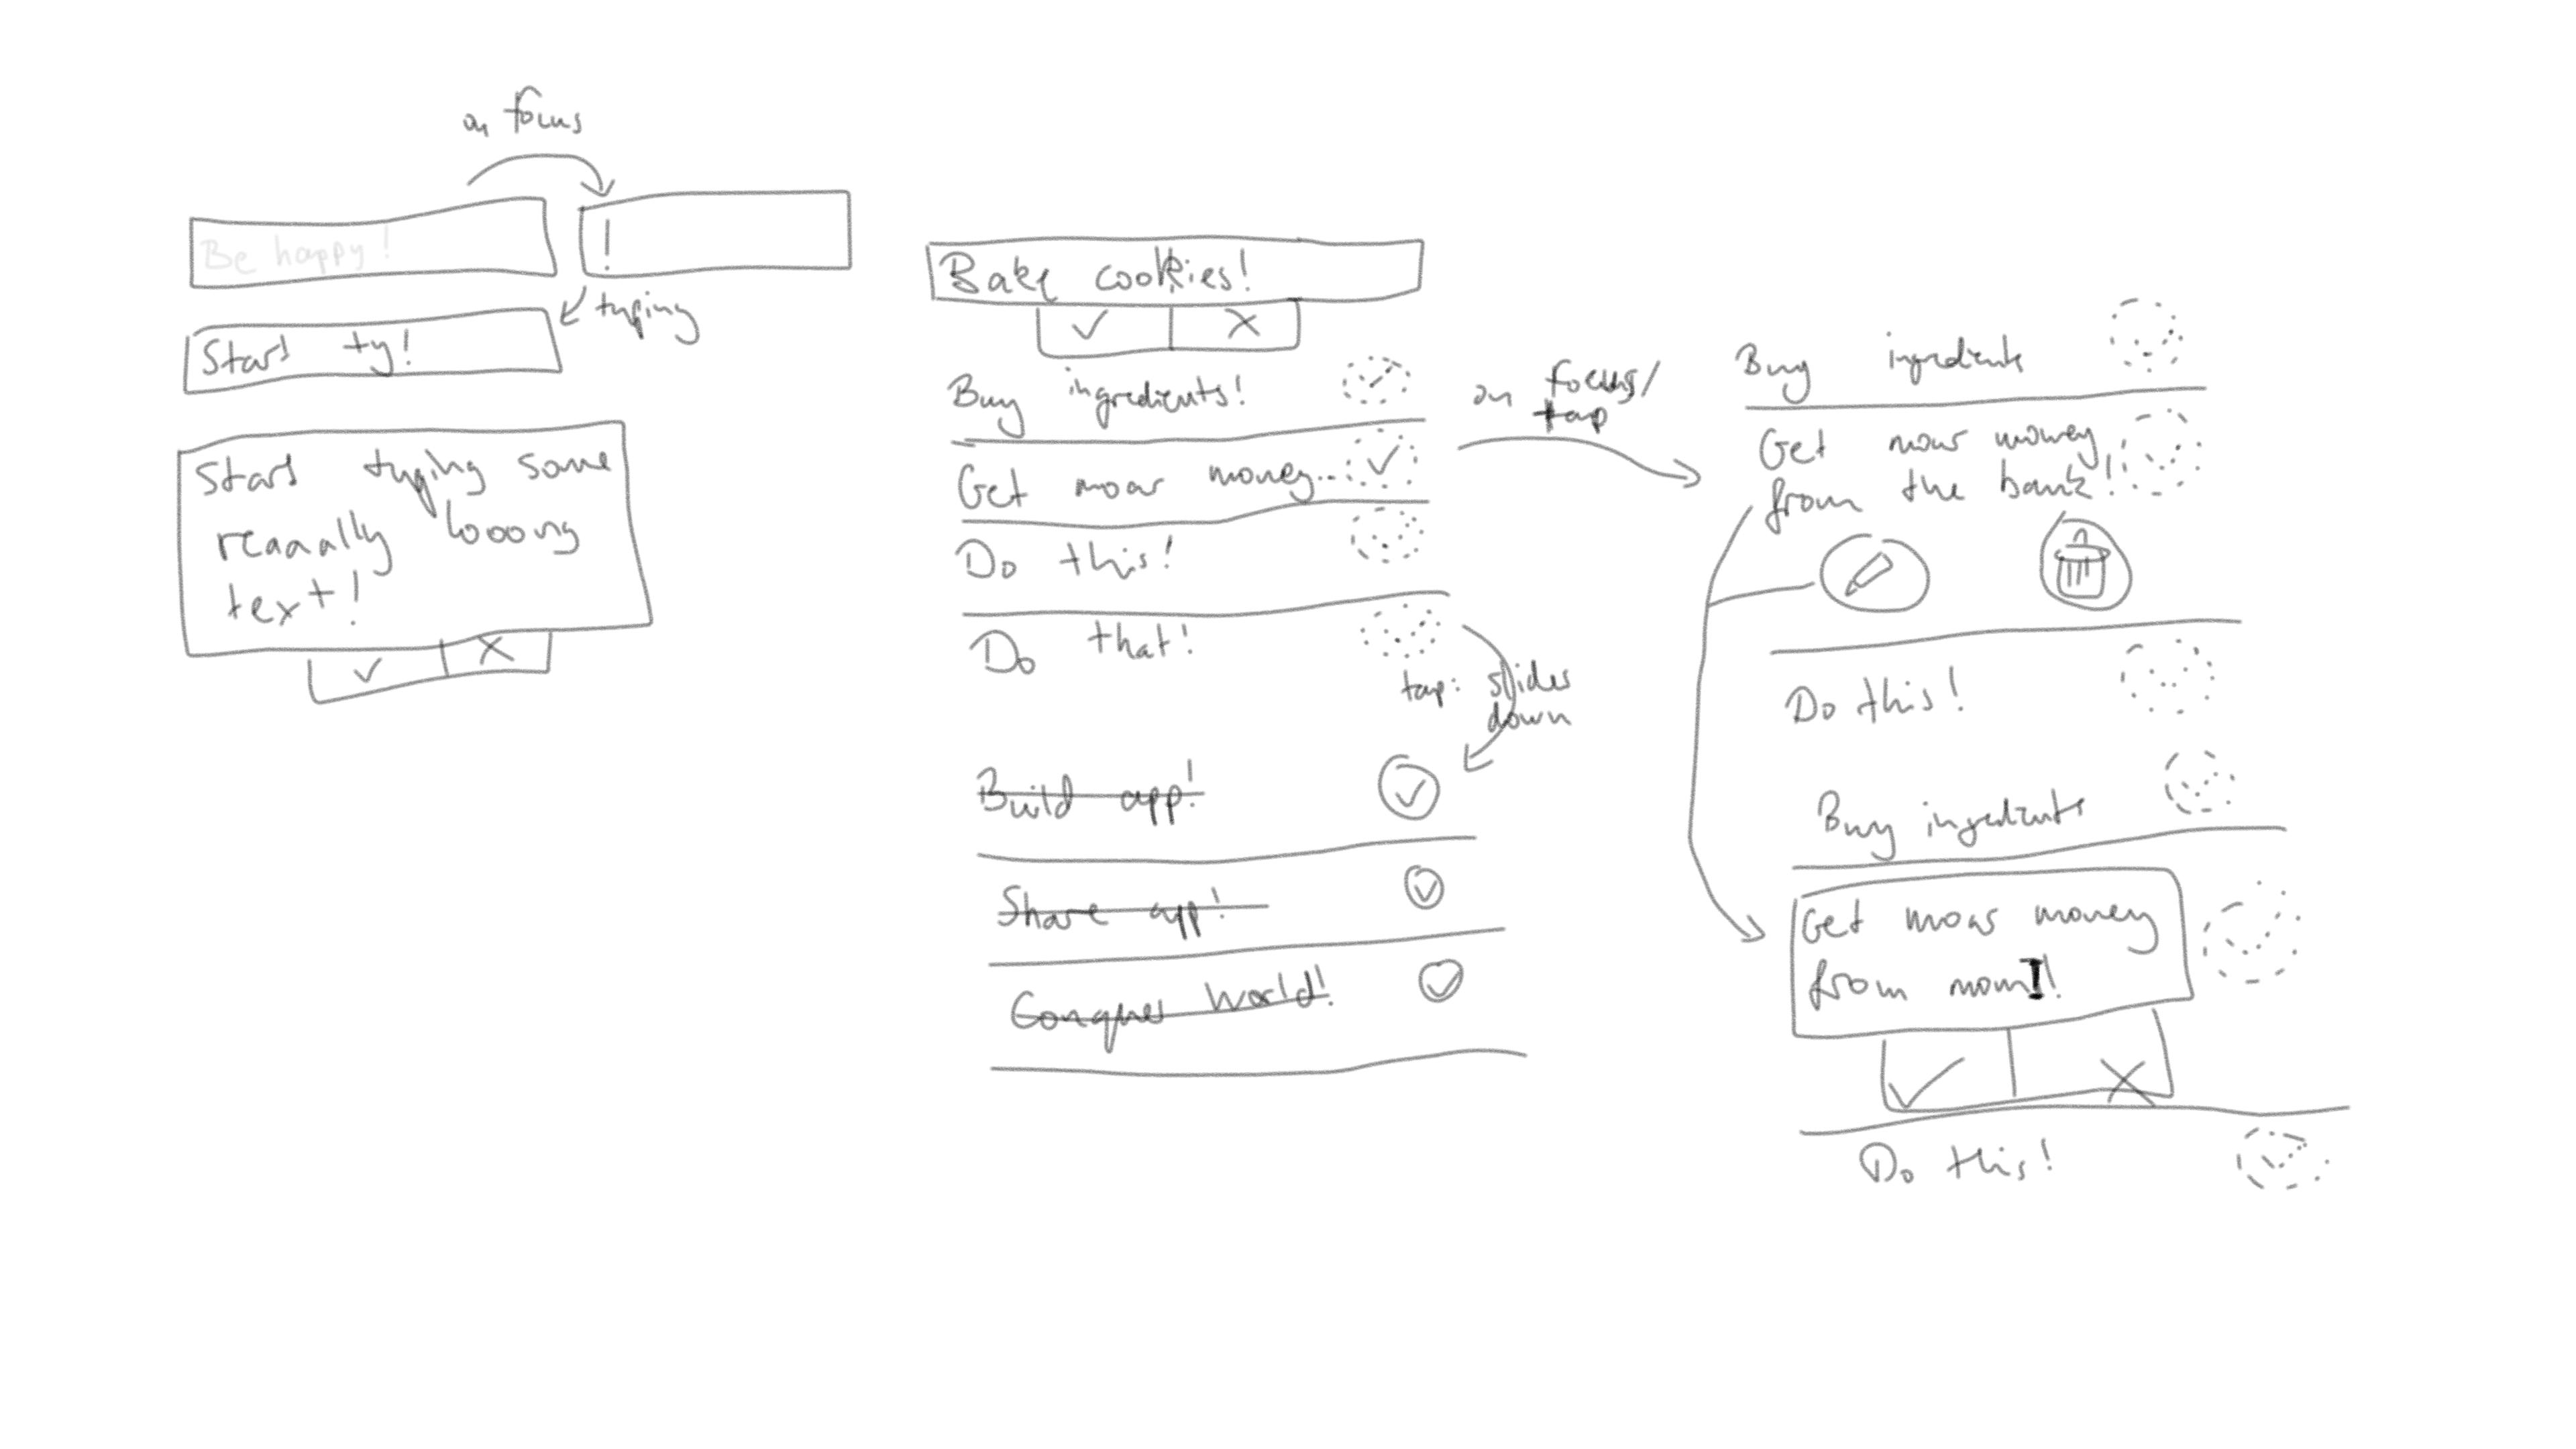 on focus
Be happy!
!
typing
Start ty!
Start typing some
reaaally looong
text!
Bake cookies!
Buy ingredients!
Get moar money...
Do this!
Do that!
tap: slides
down
Build app!
Share app!
Conquer World!
on focus/
tap
Buy ingredients
Get moar money
from the bank!
Do this!
Buy ingredients
Get moar money
from mom!
Do this!